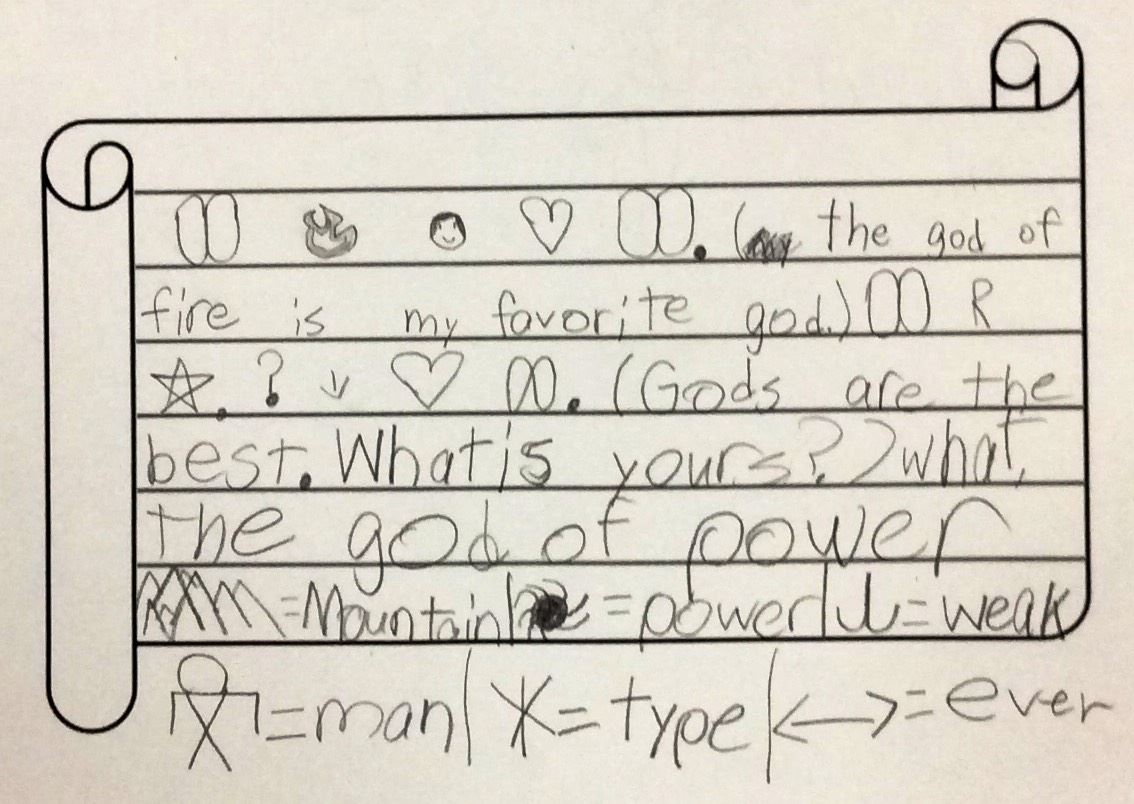 . (the god of
fire is my favorite god.) R
. ? ↓ ♡ . (Gods are the
best. What is yours?) what
the god of power
=Mountain| =power| =weak
=man| =type| <—>=ever